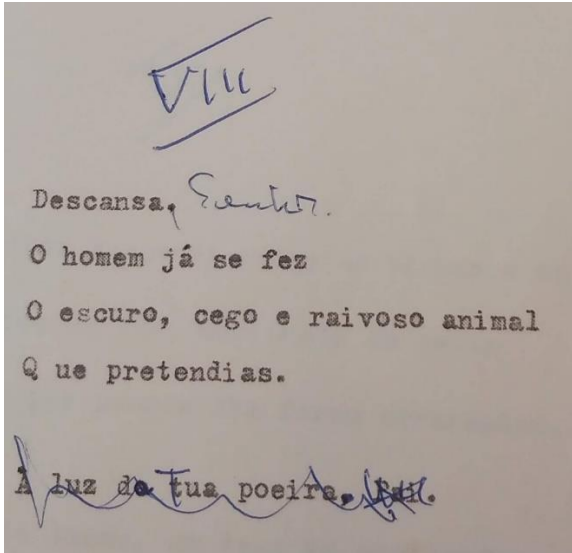 VIII
Descansa, Senhor.
O homem já se fez
O escuro, cego e raivoso animal
Q ue pretendias.
À luz da Tua poeira,